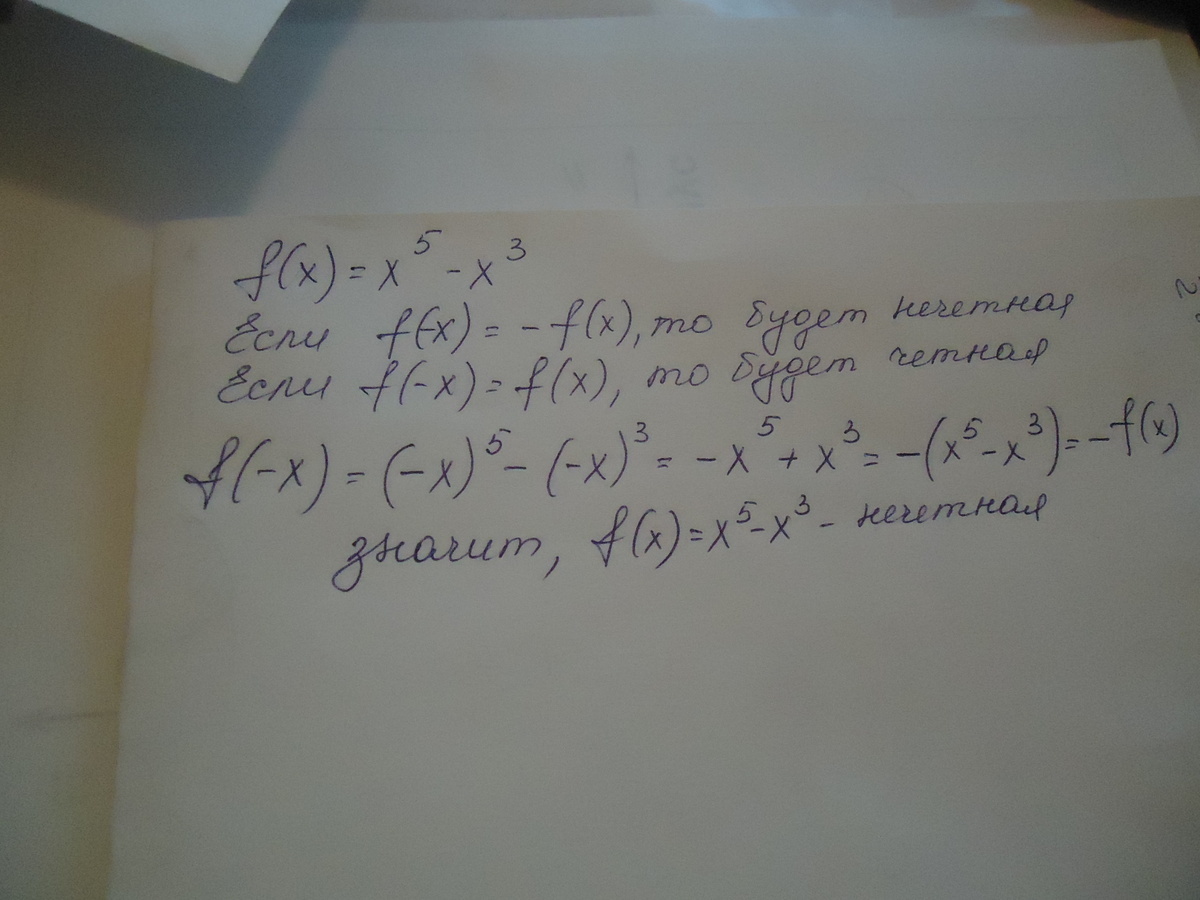 f(x) = x⁵ - x³
Если f(-x) = - f(x), то будет нечетная
Если f(-x) = f(x), то будет четная
f(-x) = (-x)⁵ - (-x)³ = - x⁵ + x³ = -(x⁵ - x³) = - f(x)
значит, f(x) = x⁵ - x³ - нечетная